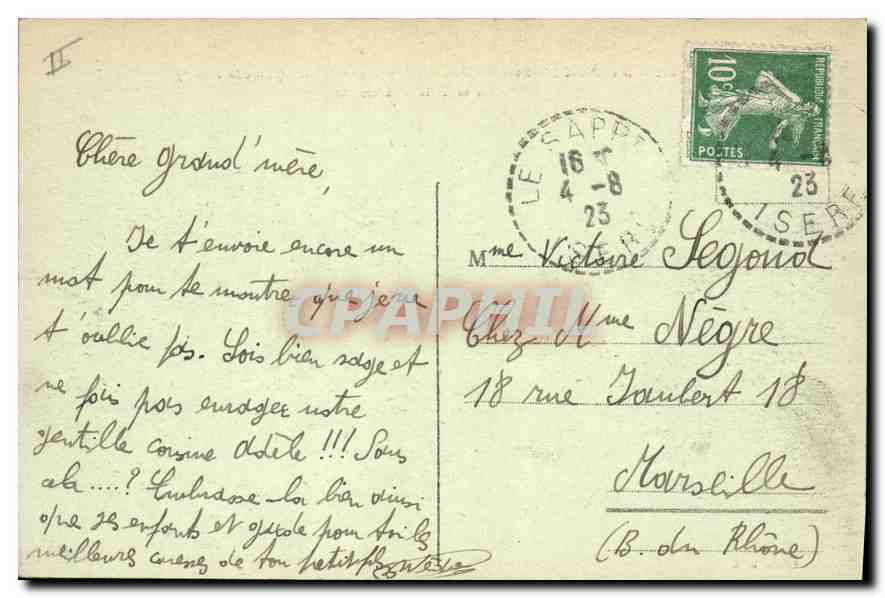 II
Chère grand'mère,
Je t'envoie encore un
mot pour te montrer que je ne
t'oublie pas. Sois bien sage et
ne fais pas enrager notre
gentille cousine Adèle !!! Sans
cela ....? Embrasse-la bien ainsi
que ses enfants et garde pour toi les
meilleures caresses de ton petit fils
LE SAPPE
16
4 -8
23
ISERE
10c
REPUBLIQUE FRANCAISE
POSTES
4 -8
23
ISERE
Mme Victoire Segond
Chez Mme Nègre
18 rue Jaubert 18
Marseille
(B. du Rhône)
CPAPHIL